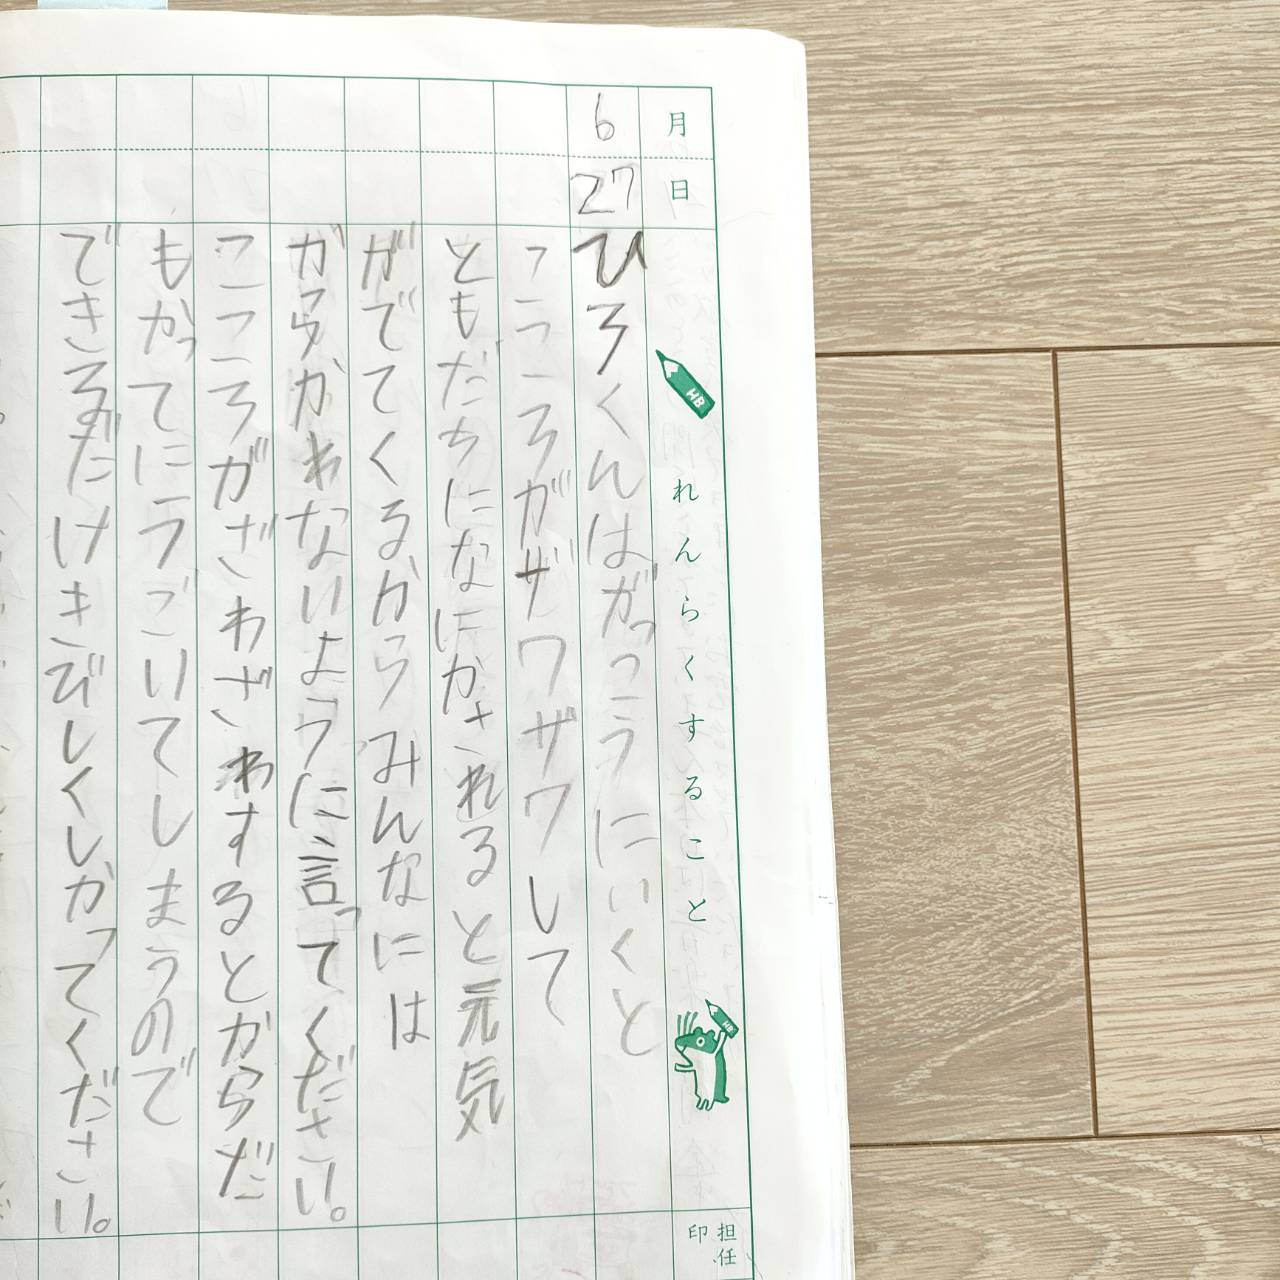 月 日 れんらくすること
担任印
6 27 ひろくんはがっこうにいくと
こころがザワザワして
ともだちになにかされると元気
がでてくるからみんなには
からかわないように言ってください。
こころがざわざわするとからだ
もかってにうごいてしまうので
できるだけきびしくしかってください。
HB
HB